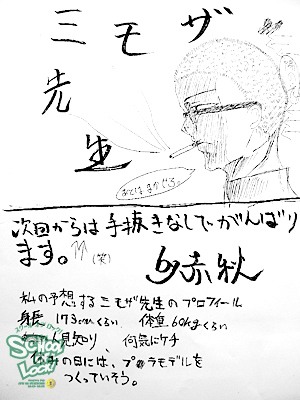 三モザ
先
生
あとはまかせろ
次回からは手抜きなしでがんばり
ます。 (笑) by赤秋
私の予想するミモザ先生のプロフィール
身長 173cmくらい 体重60kgくらい
人見知り、何気にケチ
休みの日には、プラモデルを
つくっていそう。
SCHOOL
LOCK!